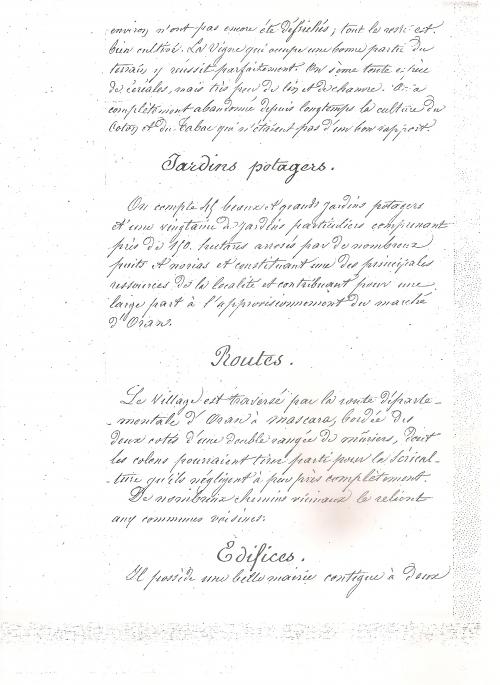 environ n'ont pas encore été défrichés; tout le reste est
bien cultivé. La Vigne qui occupe une bonne partie du
terrain y réussit parfaitement. On sème toute espèce
de céréales, mais très peu de lin et de chanvre. On a
complètement abandonné depuis longtemps la culture du
Coton et du Tabac qui n'étaient pas d'un bon rapport.
Jardins potagers.
On compte 45 beaux et grands jardins potagers
et une vingtaine de jardins particuliers comprenant
près de 150 hectares arrosés par de nombreux
puits et norias et constituant une des principales
ressources de la localité et contribuant pour une
large part à l'approvisionnement du marché
d'Oran.
Routes.
Le Village est traversé par la route départe-
-mentale d'Oran à Mascara, bordée des
deux cotés d'une double rangée de mûriers, dont
les colons pourraient tirer parti pour la Sérical-
-ture qu'ils négligent à peu près complètement.
De nombreux chemins vicinaux le relient
aux communes voisines.
Edifices.
Il possède une belle mairie contigue à deux